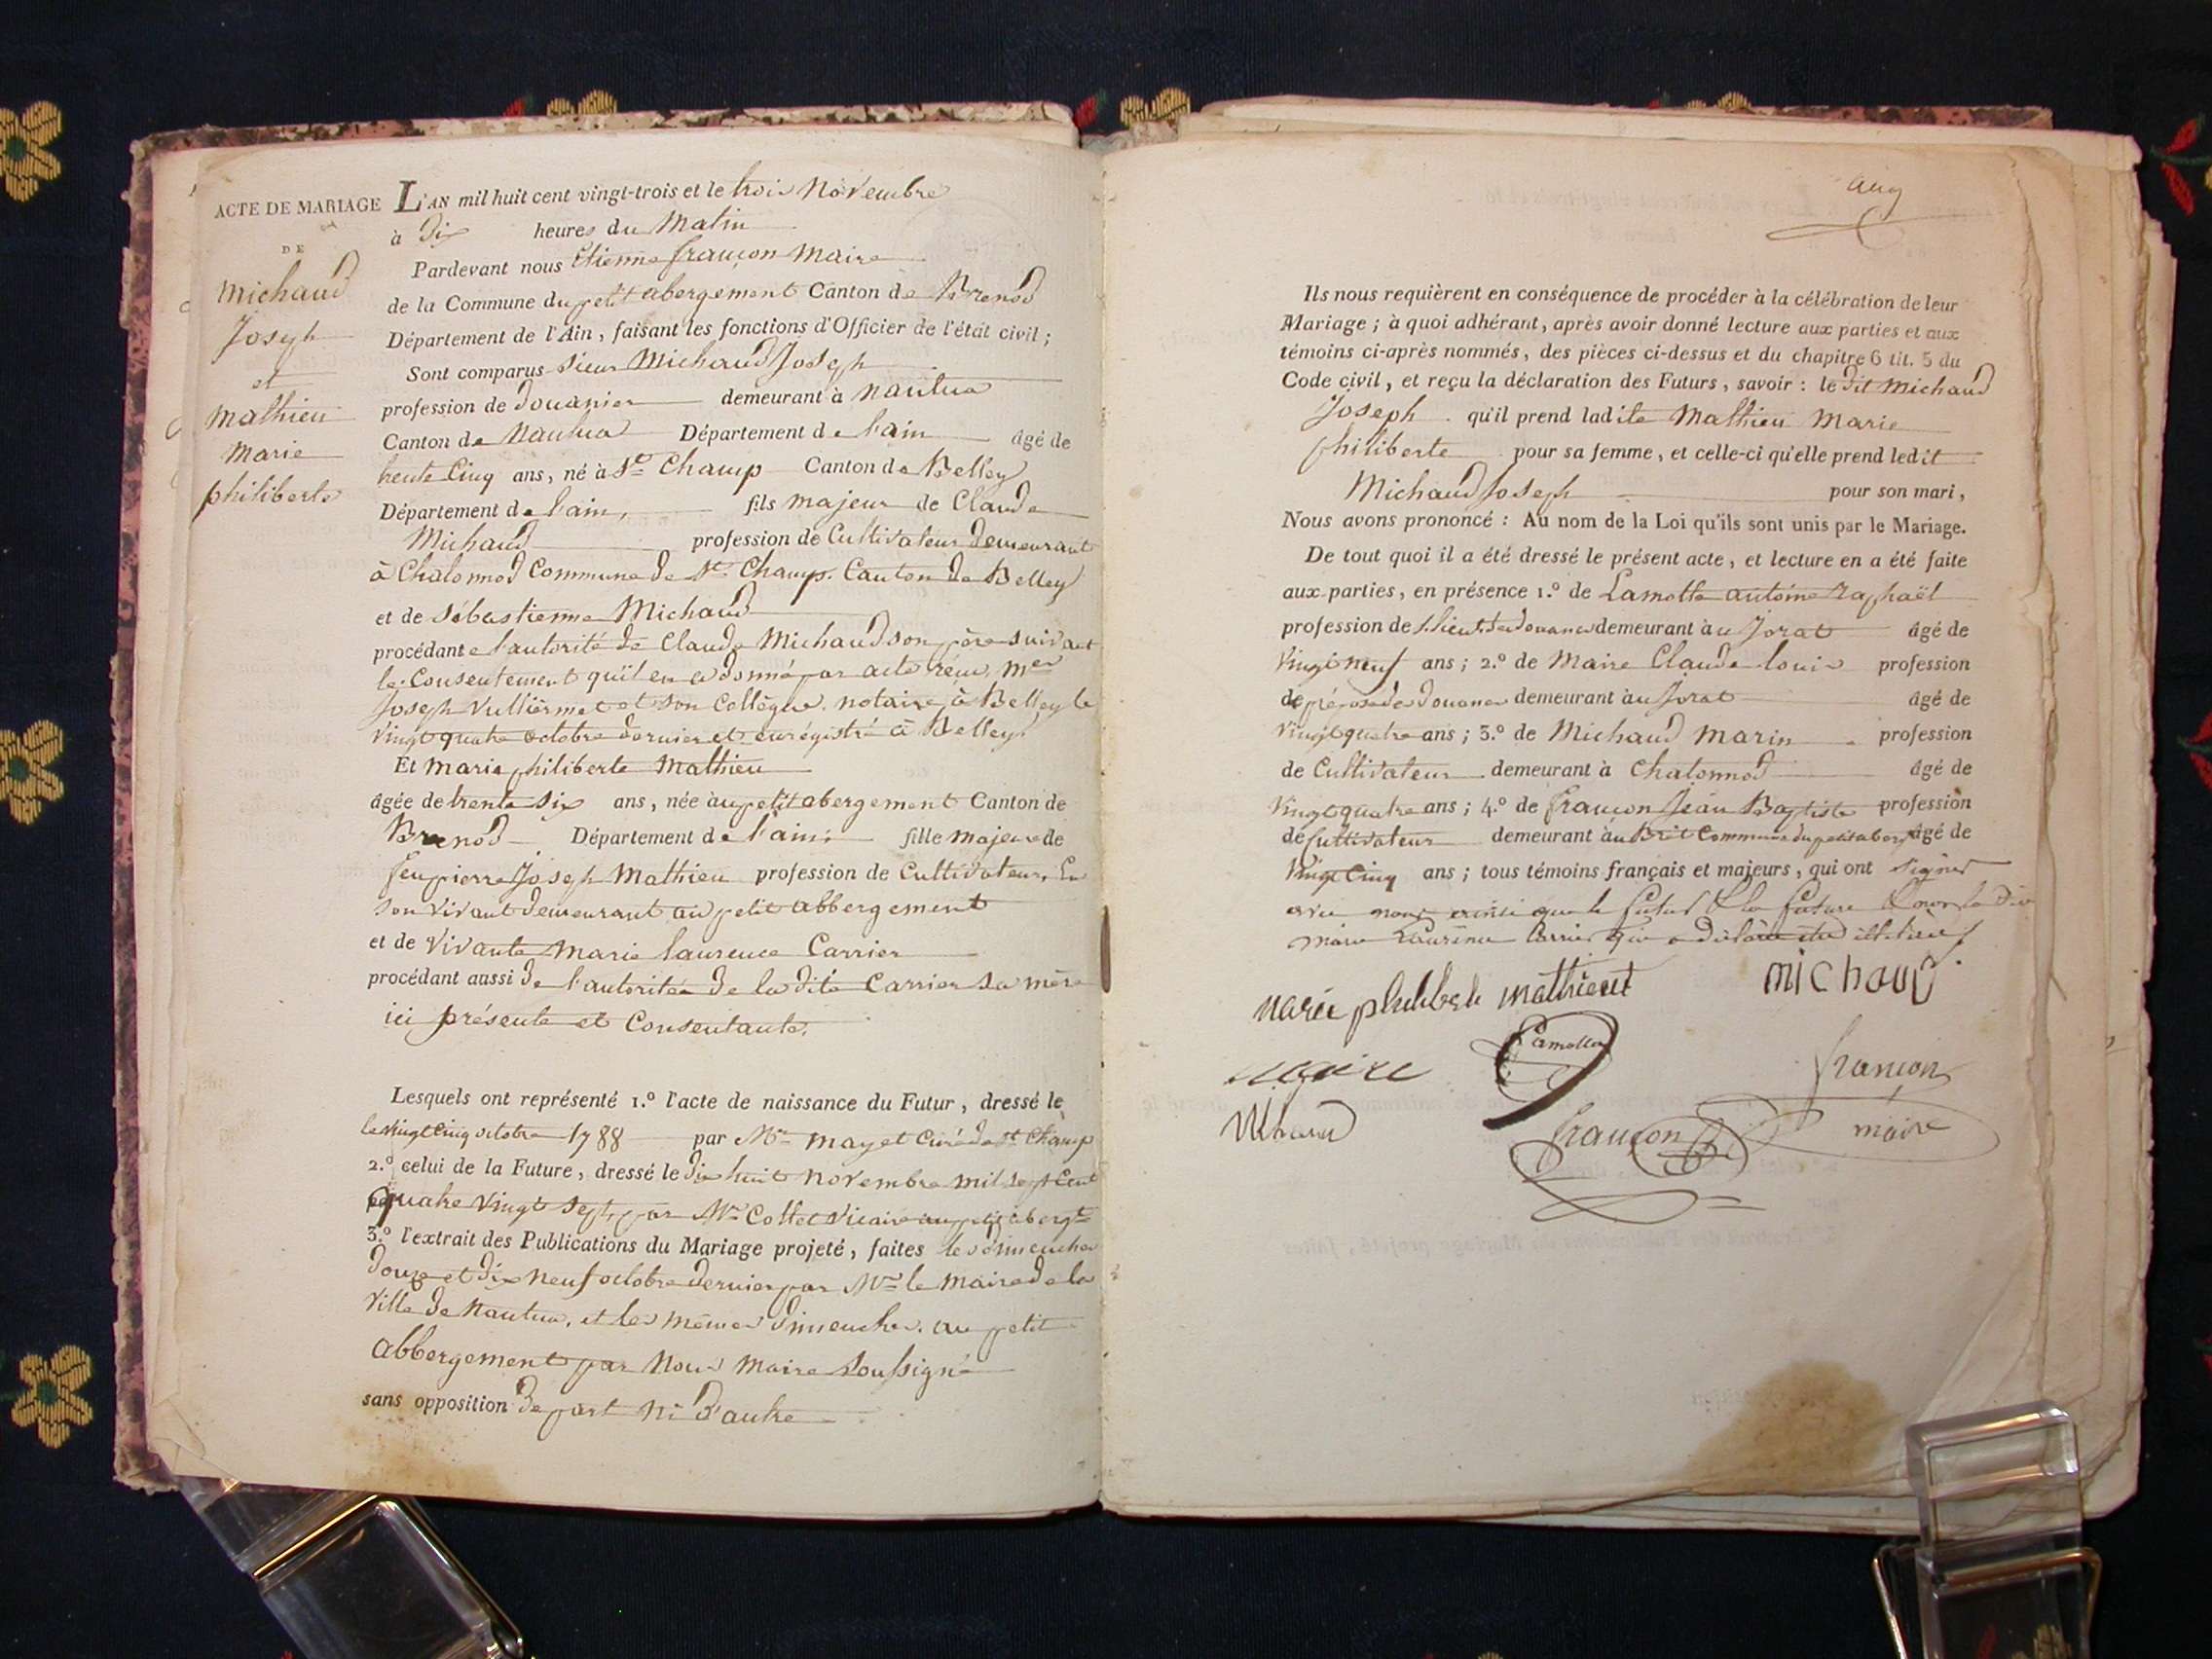 ACTE DE MARIAGE
DE
Michaud
Joseph
et
Mathieu
Marie
philiberte
L'AN mil huit cent vingt-trois et le trois Novembre
à Dix heures du Matin
Pardevant nous Etienne françon Maire
de la Commune du petit abergement Canton de Brenod
Département de l'Ain, faisant les fonctions d'Officier de l'état civil;
Sont comparus sieur Michaud Joseph
profession de Douanier demeurant à Nantua
Canton de Nantua Département de l'ain âgé de
trente Cinq ans, né à St Champ Canton de Belley
Département de l'ain, fils majeur de Claude
Michaud profession de Cultivateur Demeurant
à Chatonnod Commune de St Champ. Canton de Belley
et de Sébastienne Michaud
procédant de l'autorité de Claude Michaud son père suivant
le Consentement qu'il en a donné par acte reçu Mes
Joseph Vulliermet et son Collègue notaires à Belley le
Vingt quatre octobre dernier et enrégistré à Belley.
Et Marie philiberte Mathieu
âgée de trente Six ans, née au petit abergement Canton de
Brenod Département de l'ain; fille majeure de
feu pierre Joseph Mathieu profession de Cultivateur, En
son vivant demeurant au petit abbergement
et de vivante Marie laurence Carrier
procédant aussi De l'autorité De la dite Carrier sa mère
ici présente et Consentante.
Lesquels ont représenté 1.º l'acte de naissance du Futur, dressé le
le vingt Cinq octobre 1788 par Mr Mayet Curé de St Champ
2.º celui de la Future, dressé le dix huit Novembre mil sept Cent
quatre vingt Sept, par Mr Collet Vicaire au petit abergt
3.º l'extrait des Publications du Mariage projeté, faites les dimenches
Douze et Dix Neuf octobre dernier par Mr le Maire de la
Ville de Nantua, et les mêmes Dimenches. au petit
abbergement par Nous Maire Soussigné
sans opposition De part Ni D'autre
Ils nous requièrent en conséquence de procéder à la célébration de leur
Mariage; à quoi adhérant, après avoir donné lecture aux parties et aux
témoins ci-après nommés, des pièces ci-dessus et du chapitre 6 tit. 5 du
Code civil, et reçu la déclaration des Futurs, savoir: le dit Michaud
Joseph qu'il prend ladite Mathieu Marie
philiberte pour sa femme, et celle-ci qu'elle prend ledit
Michaud Joseph pour son mari,
Nous avons prononcé: Au nom de la Loi qu'ils sont unis par le Mariage.
De tout quoi il a été dressé le présent acte, et lecture en a été faite
aux parties, en présence 1.º de Lamotte antoine Raphaël
profession de s. lieut. des Douanes demeurant à u Jorat âgé de
Vingt neuf ans; 2.º de Maire Claude louis profession
de préposé des Douanes demeurant à u Jorat âgé de
Vingt quatre ans; 3.º de Michaud Marin profession
de Cultivateur demeurant à Chatonnod âgé de
Vingt quatre ans; 4.º de françon Jean Baptiste profession
de Cultivateur demeurant à u Commune du petit aberg âgé de
Vingt Cinq ans; tous témoins français et majeurs, qui ont signés
avec nous ainsi que le futur & la future la dite
Marie Laurence Carrier qui a déclaré être illitérée
Marie philiberte Mathieu michaud
Maire Lamotte françon
Michaud françon maire